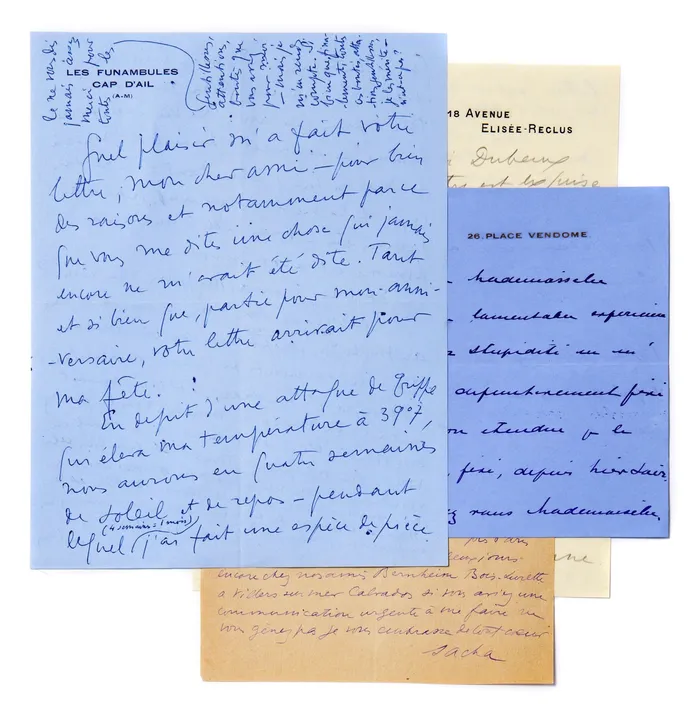 LES FUNAMBULES
CAP D'AIL
(A-M)
Je ne vous dis
jamais assez
merci pour
toutes les
gentillesses,
attentions,
bontés que
vous avez
pour moi
- mais je
m'en rends
compte. Si
bien que, fina-
lement, toutes
ces bontés, atten-
tions, gentillesses,
je les mérite -
n'est-ce pas?
Quel plaisir m'a fait votre
lettre, mon cher ami - pour bien
des raisons et notamment parce
que vous me dites une chose qui jamais
encore ne m'avait été dite. Tant
et si bien que, partie pour mon anni-
-versaire, votre lettre arrivait pour
ma fête.
En dépit d'une attaque de grippe
qui éleva ma température à 39°7,
nous aurons eu quatre semaines
de soleil et de repos - pendant
(4 semaines = 1 mois)
lequel j'ai fait une espèce de pièce
18 AVENUE
ELISÉE-RECLUS
Dubeux
est exquise
26. PLACE VENDOME
Mademoiselle
lamentable expérience
stupidité
fixé
étendue
fixé, depuis hier soir
vous mademoiselle
jours
encore chez nos amis Bernheim Bois-Lurette
à Villers sur mer Calvados si vous aviez une
communication urgente à me faire ne
vous gênez pas je vous embrasse de tout coeur
Sacha